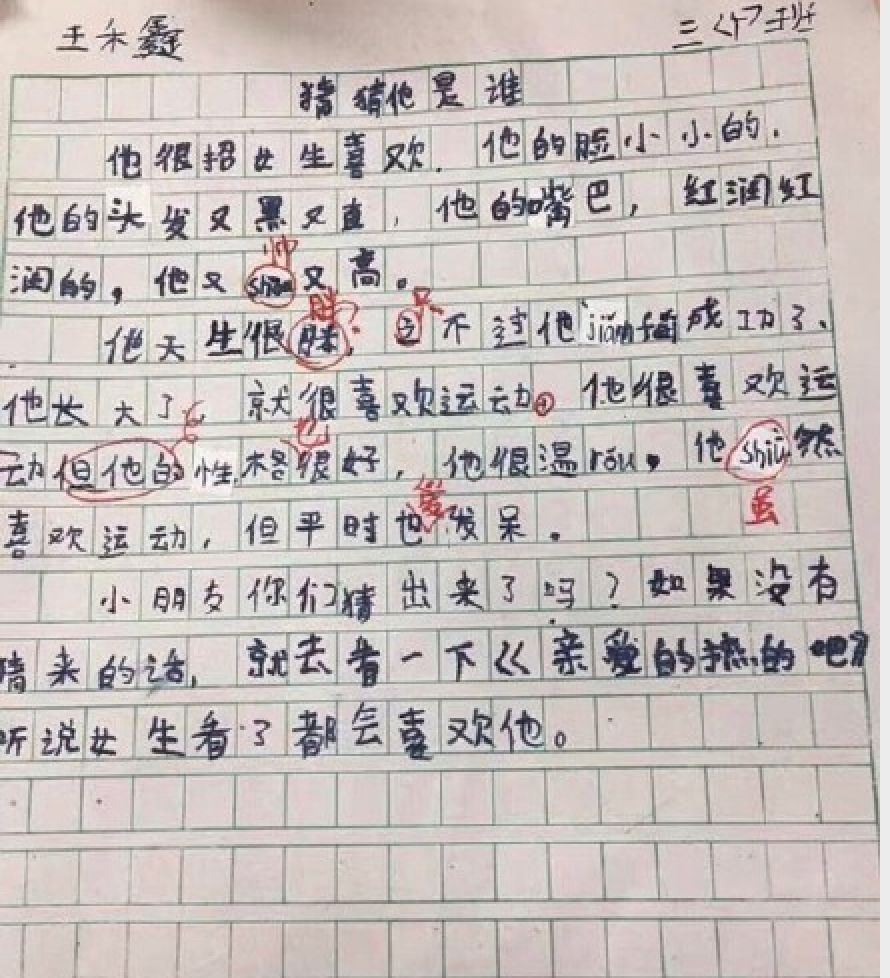 王禾鑫 三(1)班
猜猜他是谁
他很招女生喜欢. 他的脸小小的.
他的头发又黑又直, 他的嘴巴, 红润红
润的, 他又shuai又高。
帅
胖
他天生很胖, 不过他jiǎn肥成功了、
他长大了 就很喜欢运动 他很喜欢运
动但他的性格很好, 他很温róu。他shuī然
也
喜欢运动, 但平时也发呆。
爱
虽
小朋友你们猜出来了吗?如果没有
猜来的话, 就去看一下《亲爱的热的吧》
听说女生看了都会喜欢他。